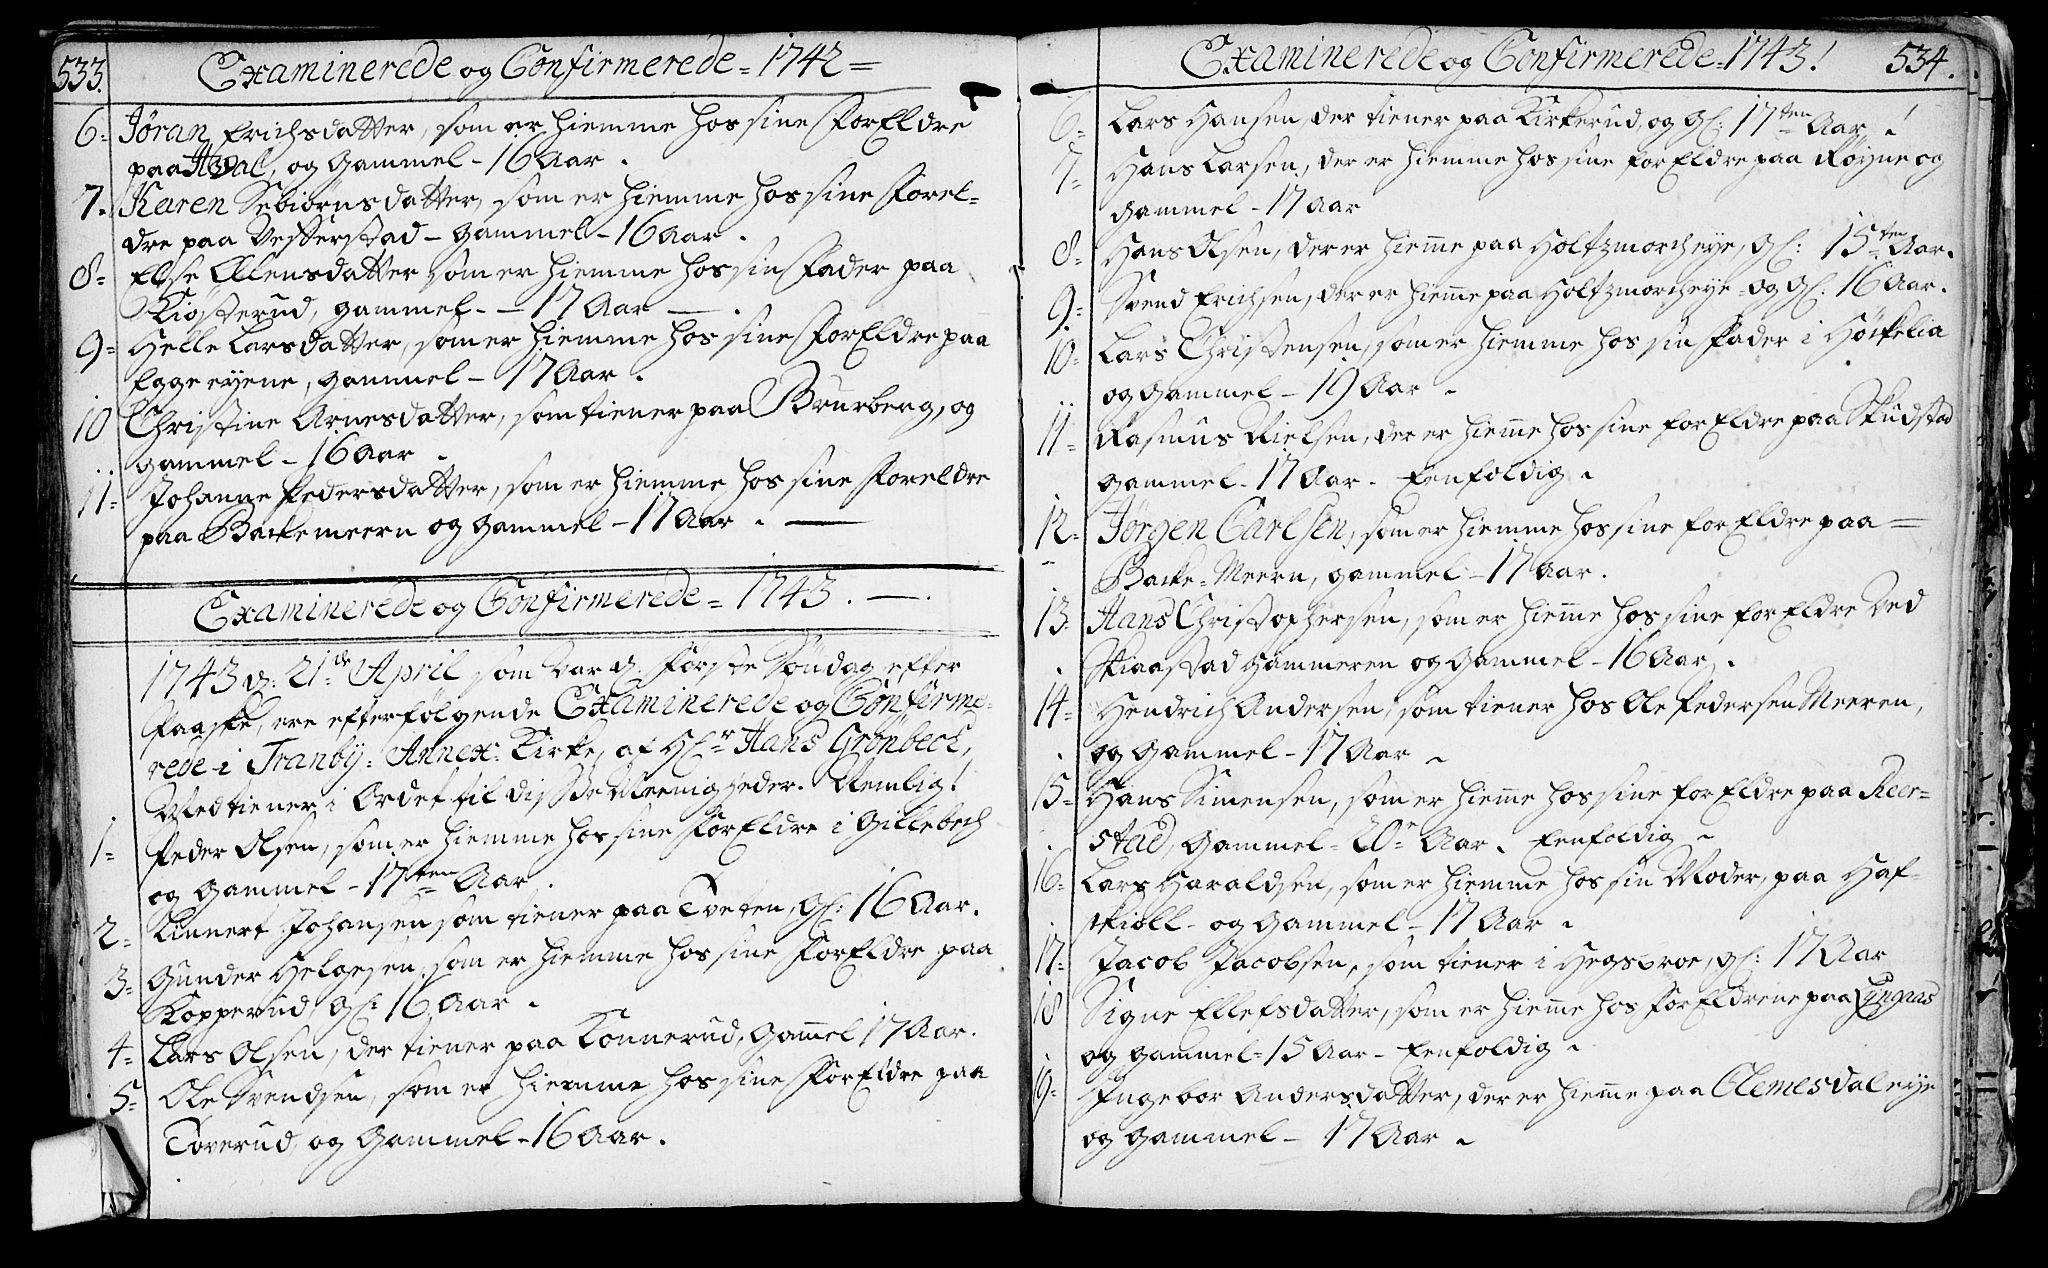 533. Examinerede og Confirmerede = 1742 =
6= Jöran Erichsdatter, som er hiemme hos sine ForEldre
paa Hval, og Gammel - 16 Aar.
7. Karen Sebiörnsdatter, som er hiemme hos sine Forel-
dre paa Vesterstad - Gammel - 16 Aar.
8= Else Ellensdatter som er hiemme hos sin Fader paa
Kiösterud, gammel - - 17 Aar - .
9= Helle Larsdatter, som er hiemme hos sine ForEldre paa
Egge eyene, gammel - 17 Aar.
10 Christine Arnesdatter, som tiener paa Brurberg, og
gammel - 16 Aar.
11= Johanne Pedersdatter, som er hiemme hos sine Foreldre
paa Backemeern og gammel - 17 Aar. -
Examinerede og Confirmerede = 1743. - .
1743 d: 21de April som var d. Förste Söndag efter
Paaske, ere efterfölgende Examinerede og Confirme-
rede i Tranby= Annex= Kirke, af Hr Hans Grönbeck,
Medtiener i Ordet til disse Meenigheder. Nemlig!
1= Peder Olsen, som er hiemme hos sine ForEldre i Gillebech
og Gammel - 17ten Aar.
2= Kinnert Johansen som tiener paa Tveten, Gl: 16 Aar.
3= Gunder Helgesen, som er hiemme hos sine ForEldre paa
Kopperud, Gl: 16 Aar.
4= Lars Olsen, der tiener paa Konnerud, Gamel 17 Aar.
5= Ole Svendsen, som er hiemme hos sine ForEldre paa
Toverud, og Gammel - 16 Aar.
Examinerede og Confirmerede = 1743! 534.
6= Lars Hansen, der tiener paa Kirkerud, og Gl: 17ten Aar!
7= Hans Larsen, der er hiemme hos sine ForEldre paa Röyne og
gammel - 17 Aar
8= Hans Olsen, der er hieme paa Holtzmarcheye, Gl: 15ten Aar.
9= Svend Erichsen, der er hieme paa Holtzmarcheye - og Gl: 16 Aar.
10= Lars Christensen, som er hiemme hos sin Fader i Hörkelia
og Gammel - 19 Aar.
11= Rasmus Nielsen, der er hieme hos sine ForEldre paa Skudstad
gammel - 17 Aar - Eenfoldig.
12= Jörgen Carlsen, som er hiemme hos sine ForEldre paa =
Backe = Meern, gammel - 17 Aar.
13. Hans Christophersen, som er hieme hos sine ForEldre ved
Skiaastad Hammeren og Gammel - 16 Aar.
14= Hendrich Andersen, som tiener hos Ole Pedersen Meeren,
og Gammel - 17 Aar.
15= Hans Simensen, som er hieme hos sine ForEldre paa Reer=
stad, Gammel = 20= Aar. Eenfoldig.
16= Lars Haraldsen, som er hiemme hos sin Moder, paa Haf-
skioll - og Gammel - 17 Aar.
17= Jacob Jacobsen, som tiener i Hegsbroe, gl: 17 Aar
18 Signe Ellefsdatter, som er hieme hos ForEldrene paa Lyngaas
og Gammel = 15 Aar - Eenfoldig.
19= Ingebor Andersdatter, der er hieme paa Clemesdal eye
og Gammel - 17 Aar.